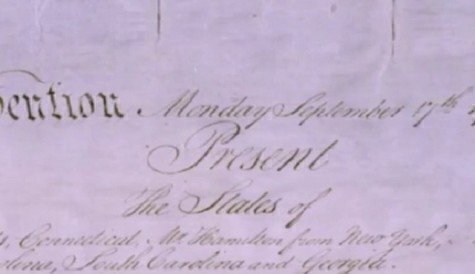 Monday September 17th
Present
The States of
Connecticut, Mr. Hamilton from New York,
South Carolina and Georgia.